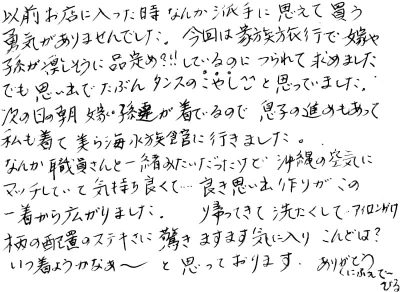 以前お店に入った時なんか派手に思えて買う
勇気がありませんでした。今回は家族旅行で嫁や
孫が涼しそうに品定め?!!しているのにつられて求めました
でも思い出でたぶんタンスのこやし…と思っていました。
次の日の朝 嫁、孫達が着ているので 息子の進めもあって
私も着て美ら海水族館に行きました。
なんか職員さんと一緒みたいだったけど 沖縄の空気に
マッチしていて気持ち良くて… 良き思い出作りがこの
一着から広がりました。 帰ってきて洗たくして アイロンがけ
柄の配置のステキさに驚き ますます気に入り こんどは?
いつ着ようかなぁ〜 と思っております. ありがとう
にふぇでーびる